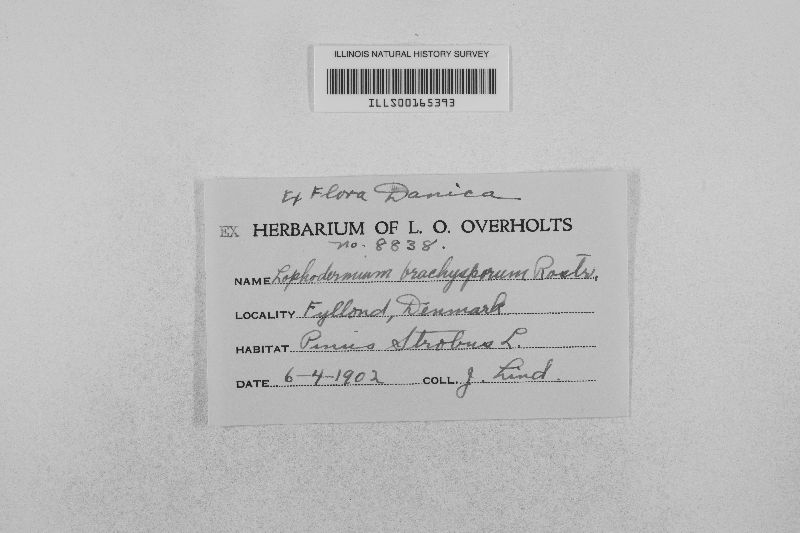 ILLINOIS NATURAL HISTORY SURVEY
ILLS00165393
Ex Flora Danica
EX HERBARIUM OF L. O. OVERHOLTS
no. 8838.
NAME Lophodermium brachysporum Rostr.
LOCALITY Fyllond, Denmark
HABITAT Pinus Strobus L.
DATE 6-4-1902 COLL. J. Lind.